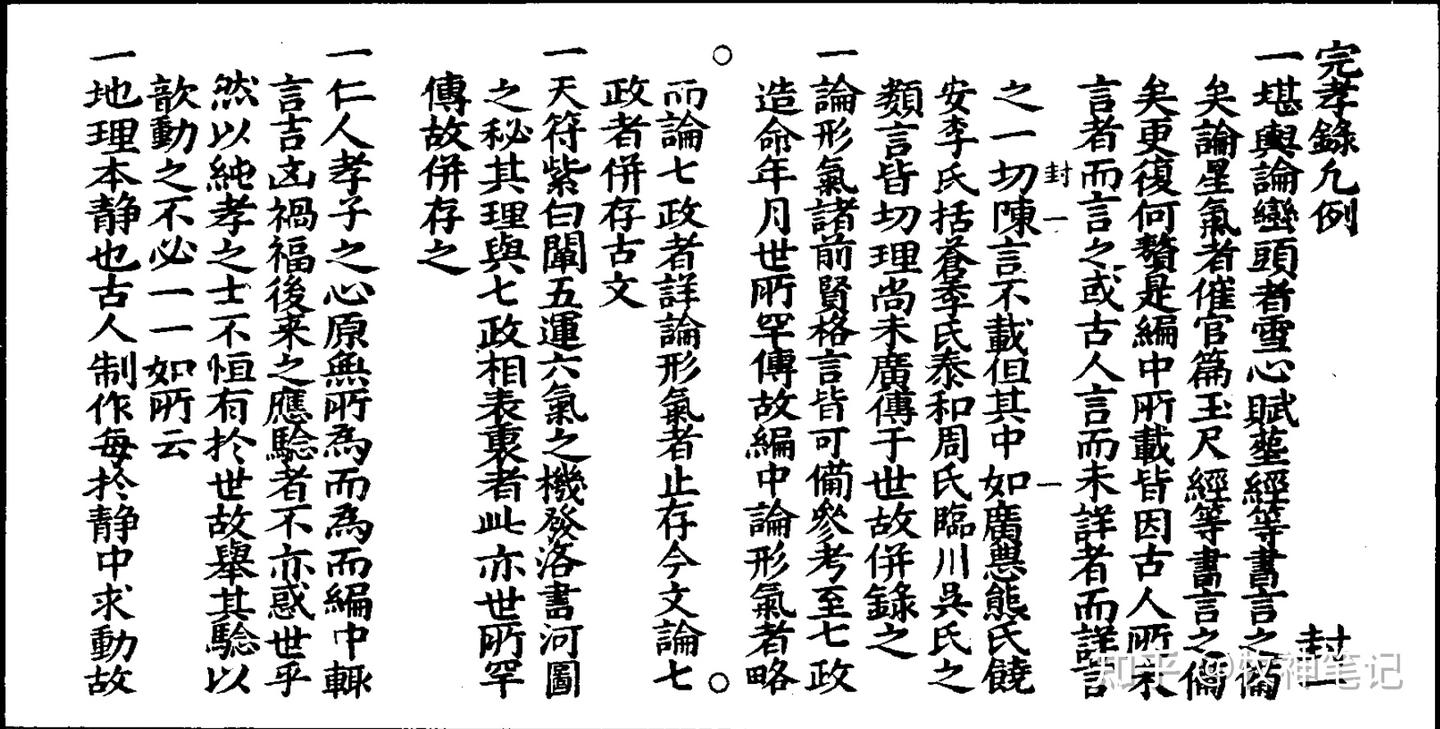 完孝錄凢例
一堪輿論巒頭者雪心賦塟經等書言之僃
矣論星氣者催官篇玉尺經等書言之僃
矣更復何贅是編中所載皆因古人所未
言者而言之或古人言而未詳者而詳言
之一切陳言不載但其中如廣㤙熊氏饒
安李氏括蒼季氏泰和周氏臨川吳氏之
類言皆切理尚未廣傳于世故併錄之
一論形氣諸前賢格言皆可備叅考至七政
造命年月世所罕傳故編中論形氣者略
而論七政者詳論形氣者止存今文論七
政者併存古文
一天符紫白闡五運六氣之機發洛書河圖
之秘其理與七政相表裏者此亦世所罕
傳故併存之
一仁人孝子之心原無所為而為而編中輙
言吉凶禍福後来之應驗者不亦惑世乎
然以純孝之士不恒有扵世故舉其驗以
歆動之不必一一如所云
一地理本静也古人制作每扵静中求動故
封一
封一
一
知乎 @牧神笔记